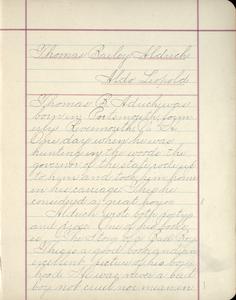 Thomas Bailey Aldrich
Aldo Leopold
Thomas B. Aldrich was
born in Portsmouth, form-
erly Rivermouth, N. H.
One day when he was
hunting in the woods the
governor of the state rode up
to him and took him home
in his carriage. This he
considered a great honor.
Aldrich wrote both poetry
and prose. One of his books,
is "The Story of a Bad Boy"
This is a good book and an
excellent picture of his boy-
hood. He was never a bad
boy not cruel nor mean in